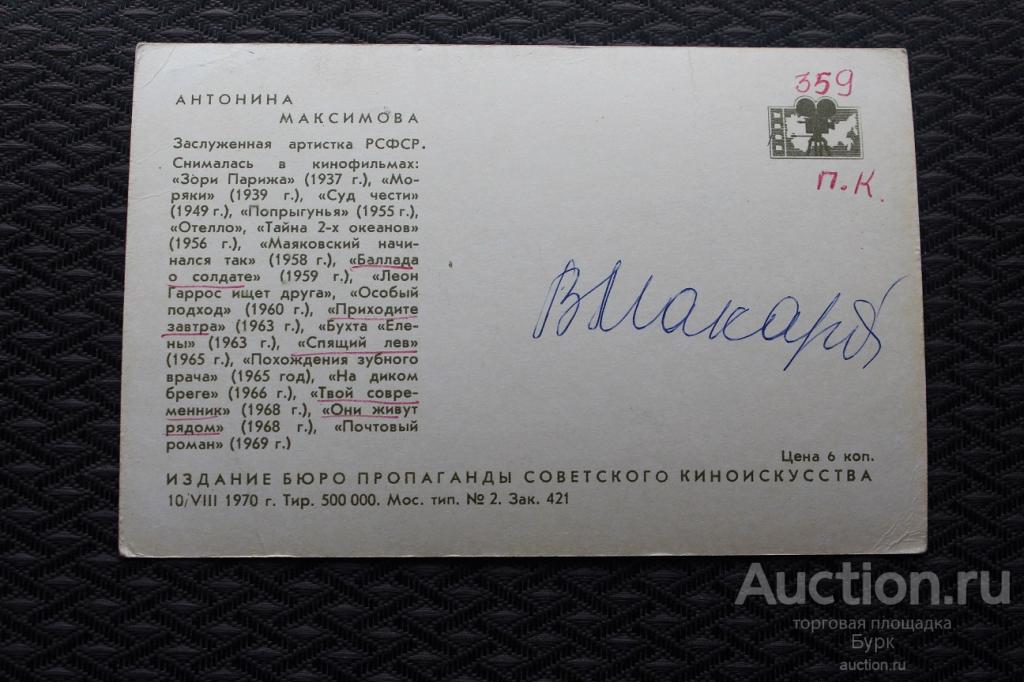 АНТОНИНА
МАКСИМОВА
Заслуженная артистка РСФСР.
Снималась в кинофильмах:
«Зори Парижа» (1937 г.), «Мо-
ряки» (1939 г.), «Суд чести»
(1949 г.), «Попрыгунья» (1955 г.),
«Отелло», «Тайна 2-х океанов»
(1956 г.), «Маяковский начи-
нался так» (1958 г.), «Баллада
о солдате» (1959 г.), «Леон
Гаррос ищет друга», «Особый
подход» (1960 г.), «Приходите
завтра» (1963 г.), «Бухта «Еле-
ны» (1963 г.), «Спящий лев»
(1965 г.), «Похождения зубного
врача» (1965 год), «На диком
бреге» (1966 г.), «Твой совре-
менник» (1968 г.), «Они живут
рядом» (1968 г.), «Почтовый
роман» (1969 г.)
359
П.К.
Цена 6 коп.
ИЗДАНИЕ БЮРО ПРОПАГАНДЫ СОВЕТСКОГО КИНОИСКУССТВА
10/VIII 1970 г. Тир. 500 000. Мос. тип. № 2. Зак. 421
Auction.ru
торговая площадка
Бурк
auction.ru